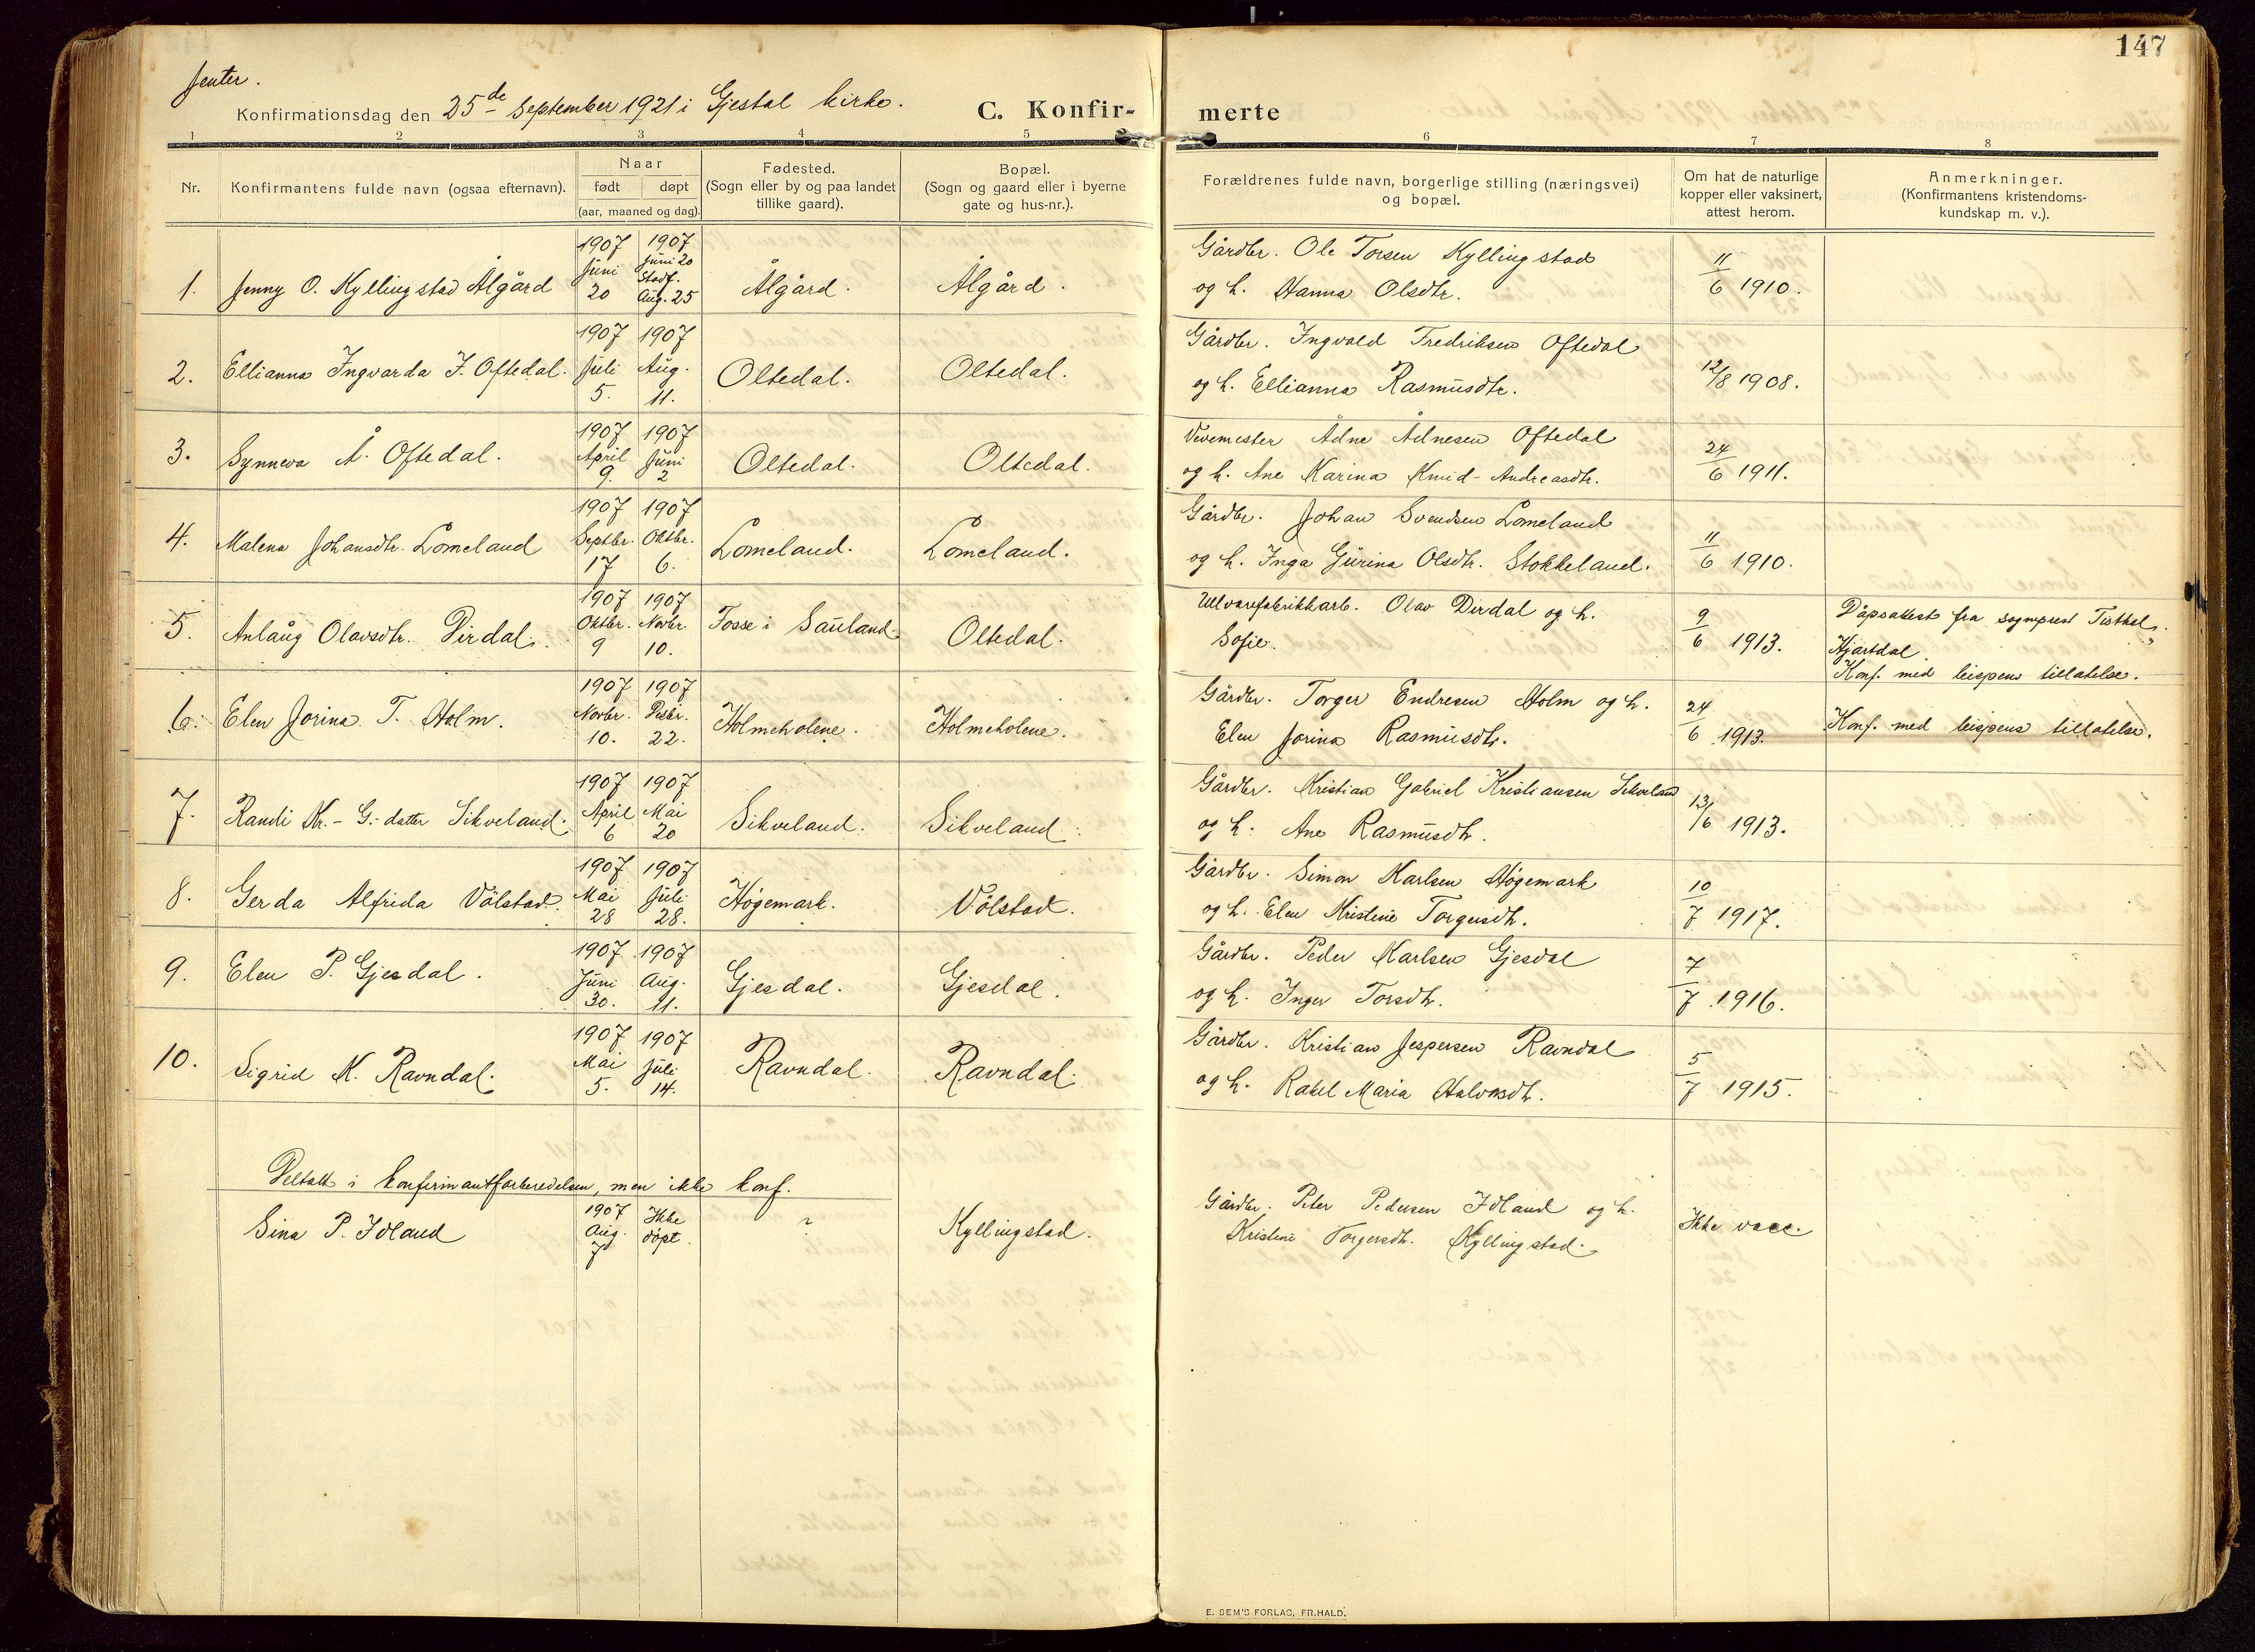 147
Jenter.
Konfirmationsdag den 25de September 1921 i Gjestal kirke.
C. Konfir-
merte
1 2 3 4 5 6 7 8
Nr.
Konfirmantens fulde navn (ogsaa efternavn).
Naar
født døpt
(aar, maaned og dag).
Fødested.
(Sogn eller by og paa landet
tillike gaard).
Bopæl.
(Sogn og gaard eller i byerne
gate og hus-nr.).
Forældrenes fulde navn, borgerlige stilling (næringsvei)
og bopæl.
Om hat de naturlige
kopper eller vaksinert,
attest herom.
Anmerkninger.
(Konfirmantens kristendoms-
kundskap m. v.).
1. Jenny O. Kyllingstad Ålgård
1907 Juni 20
1907 Juni 20 Stadf. Aug. 25
Ålgård.
Ålgård.
Gårdbr. Ole Torsen Kyllingstad
og h. Hanna Olsdtr.
11/6 1910.
2. Ellianna Ingvarda I. Oftedal.
1907 Juli 5.
1907 Aug. 11.
Oltedal.
Oltedal.
Gårdbr. Ingvald Fredriksen Oftedal
og h. Ellianna Rasmusdtr.
12/8 1908.
3. Synneva Å. Oftedal.
1907 April 9.
1907 Juni 2
Oltedal.
Oltedal.
Vevemester Ådne Ådnesen Oftedal
og h. Ane Karina Knud-Andreasdtr.
24/6 1911.
4. Malena Johansdtr. Lomeland
1907 Septbr. 17
1907 Oktbr. 6.
Lomeland.
Lomeland.
Gårdbr. Johan Svendsen Lomeland
og h. Inga Gurina Olsdtr. Stokkeland.
11/6 1910.
5. Anlaug Olavsdtr. Dirdal.
1907 Oktbr. 9
1907 Novbr. 10.
Fosse i Sauland
Oltedal.
Ullvarefabrikkarb. Olav Dirdal og h.
Sofie.
9/6 1913.
Dåpsattest fra sogneprest Tisthal,
Hjartdal.
Konf. med bispens tillatelse.
6. Elen Jorina T. Holm.
1907 Novbr. 10.
1907 Desbr. 22.
Holmeholene.
Holmeholene.
Gårdbr. Torger Endresen Holm og h.
Elen Jorina Rasmusdtr.
24/6 1913.
Konf. med bispens tillatelse.
7. Randi Kr.-G.-datter Sikveland.
1907 April 6
1907 Mai 20
Sikveland.
Sikveland.
Gårdbr. Kristian Gabriel Kristiansen Sikveland
og h. Ane Rasmusdtr.
13/6 1913.
8. Gerda Alfrida Völstad.
1907 Mai 28
1907 Juli 28.
Høgemark.
Völstad.
Gårdbr. Simon Karlsen Høgemark
og h. Elen Kristine Torgersdtr.
10/7 1917.
9. Elen P. Gjesdal.
1907 Juni 30.
1907 Aug. 11.
Gjesdal.
Gjesdal.
Gårdbr. Peder Karlsen Gjesdal
og h. Inger Torsdtr.
7/7 1916.
10. Sigrid K. Ravndal.
1907 Mai 5.
1907 Juli 14.
Ravndal.
Ravndal.
Gårdbr. Kristian Jespersen Ravndal
og h. Rakel Maria Halvorsdtr.
5/7 1915.
Deltatt i konfirmantforberedelsen, men ikke konf.
Sina P. Idland
1907 Aug. 7
Ikke døpt.
?
Kyllingstad.
Gårdbr. Peter Pedersen Idland og h.
Kristine Torgersdtr. Kyllingstad.
Ikke vacc.
E. SEM'S FORLAG, FR.HALD.